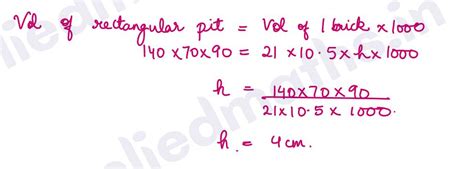 Vol of rectangular pit = Vol of 1 brick × 1000
140 × 70 × 90 = 21 × 10.5 × h × 1000
h = 140 × 70 × 90
21 × 10.5 × 1000.
h = 4 cm.
liedmaths.in